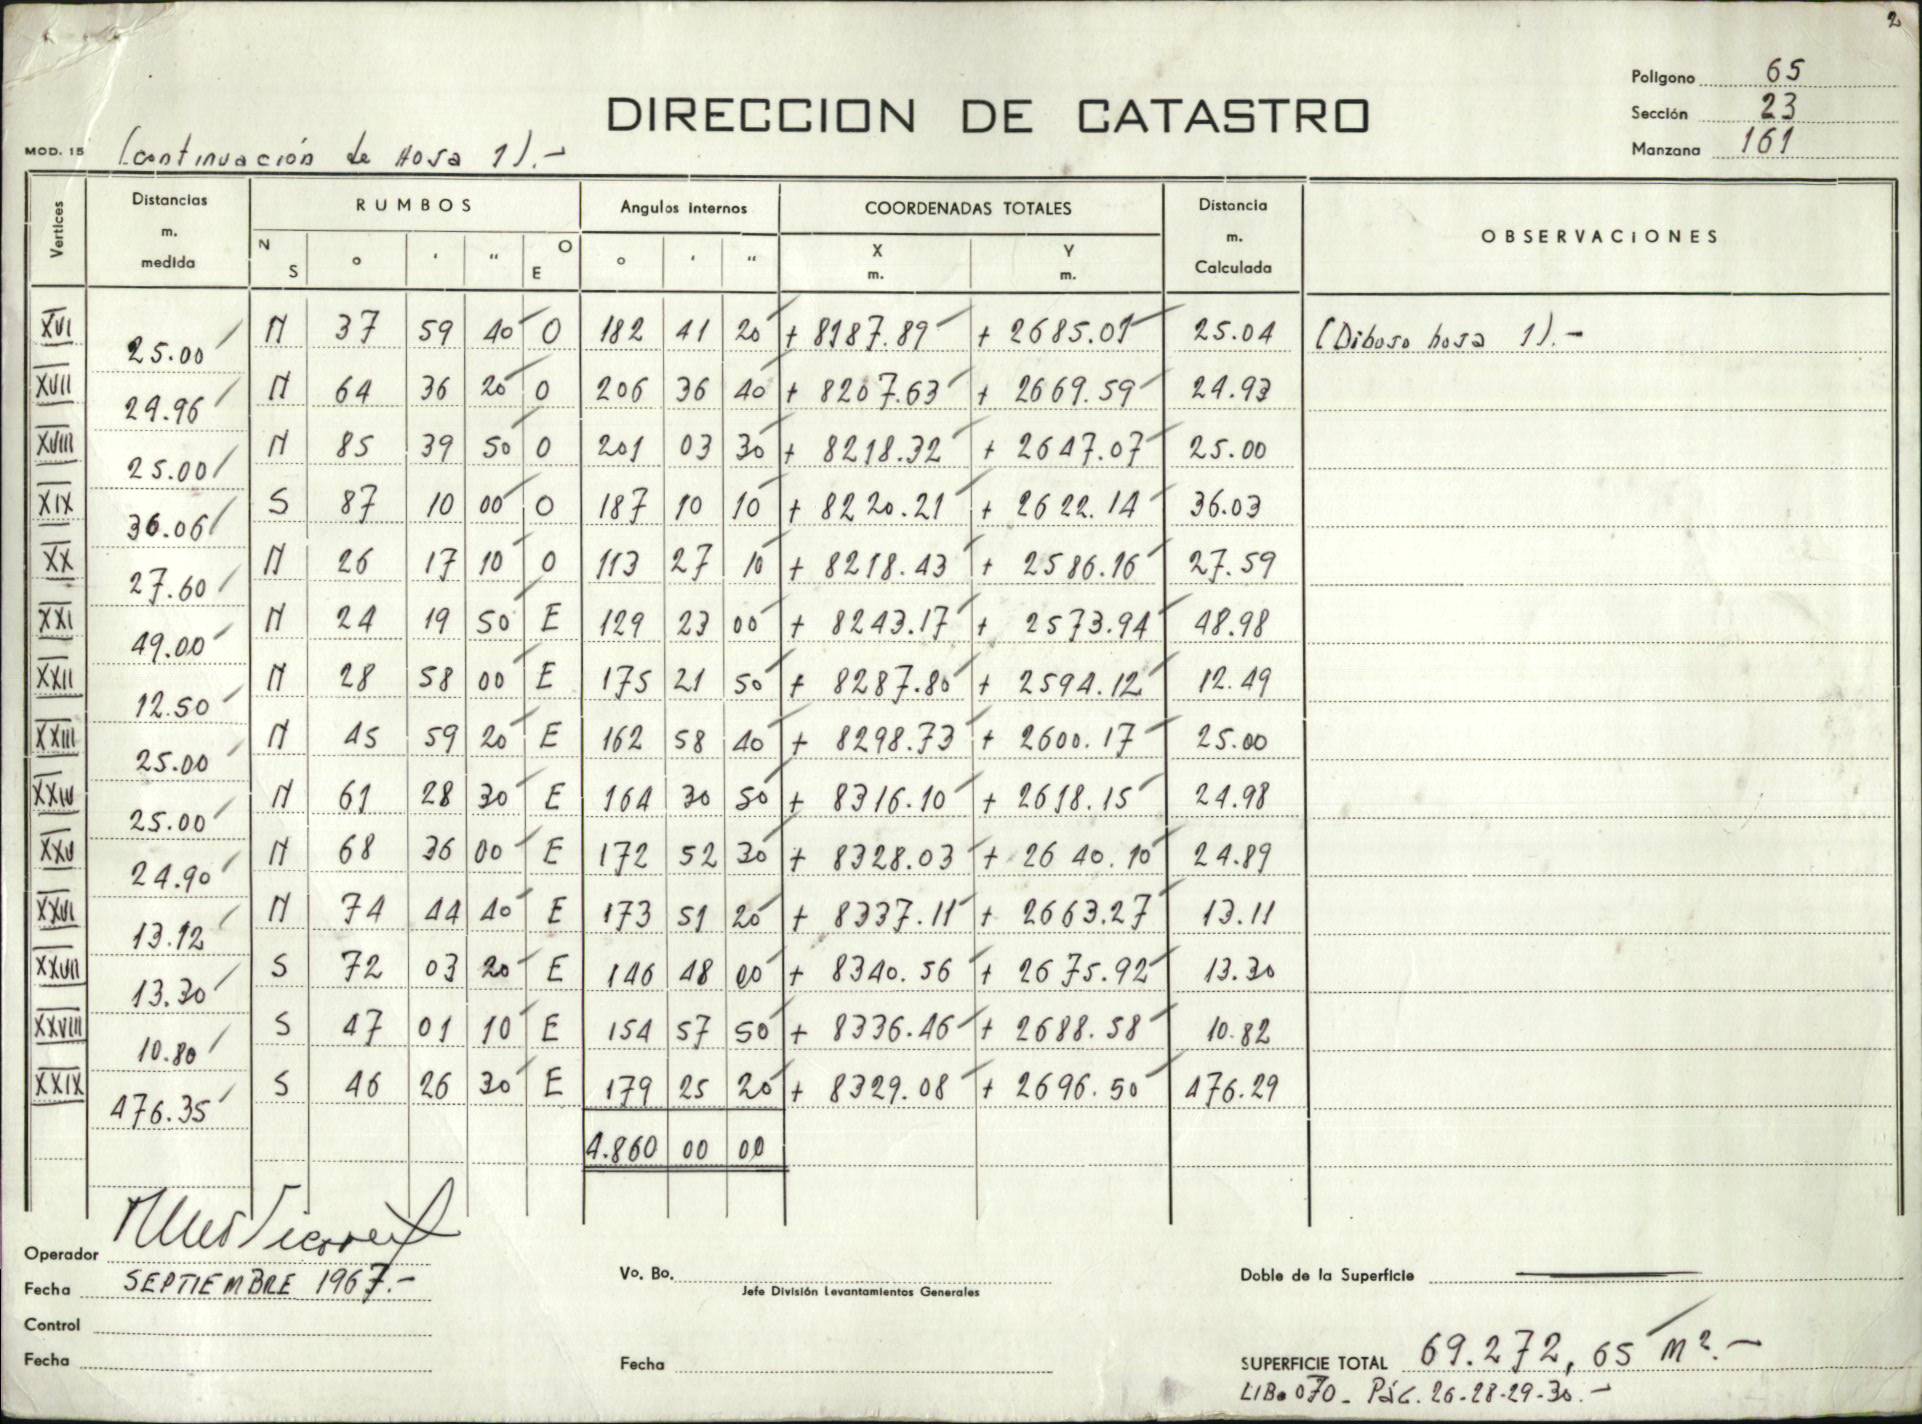 2
Poligono 65
DIRECCION DE CATASTRO
Sección 23
MOD. 15 (continuación de Hosa 1).-
Manzana 161
Vertices Distancias m. medida RUMBOS Angulos internos COORDENADAS TOTALES Distancia m. Calculada OBSERVACIONES
N S ° ' " O E ° ' " X m. Y m.
XVI 25.00 N 37 59 40 O 182 41 20 + 8187.89 + 2685.01 25.04 (Diboso hosa 1).-
XVII 24.96 N 64 36 20 O 206 36 40 + 8207.63 + 2669.59 24.93
XVIII 25.00 N 85 39 50 O 201 03 30 + 8218.32 + 2647.07 25.00
XIX 36.06 S 87 10 00 O 187 10 10 + 8220.21 + 2622.14 36.03
XX 27.60 N 26 17 10 O 113 27 10 + 8218.43 + 2586.16 27.59
XXI 49.00 N 24 19 50 E 129 23 00 + 8243.17 + 2573.94 48.98
XXII 12.50 N 28 58 00 E 175 21 50 + 8287.80 + 2594.12 12.49
XXIII 25.00 N 45 59 20 E 162 58 40 + 8298.73 + 2600.17 25.00
XXIV 25.00 N 61 28 30 E 164 30 50 + 8316.10 + 2618.15 24.98
XXV 24.90 N 68 36 00 E 172 52 30 + 8328.03 + 2640.10 24.89
XXVI 13.12 N 74 44 40 E 173 51 20 + 8337.11 + 2663.27 13.11
XXVII 13.30 S 72 03 20 E 146 48 00 + 8340.56 + 2675.92 13.30
XXVIII 10.80 S 47 01 10 E 154 57 50 + 8336.46 + 2688.58 10.82
XXIX 476.35 S 46 26 30 E 179 25 20 + 8329.08 + 2696.50 476.29
4.860 00 00
Operador
Fecha SEPTIEMBRE 1967.-
Vo. Bo.
Jefe División Levantamientos Generales
Doble de la Superficie
Control
Fecha
Fecha
SUPERFICIE TOTAL 69.272,65 M².-
LIB. 070 - PÁG. 26-28-29-30.-